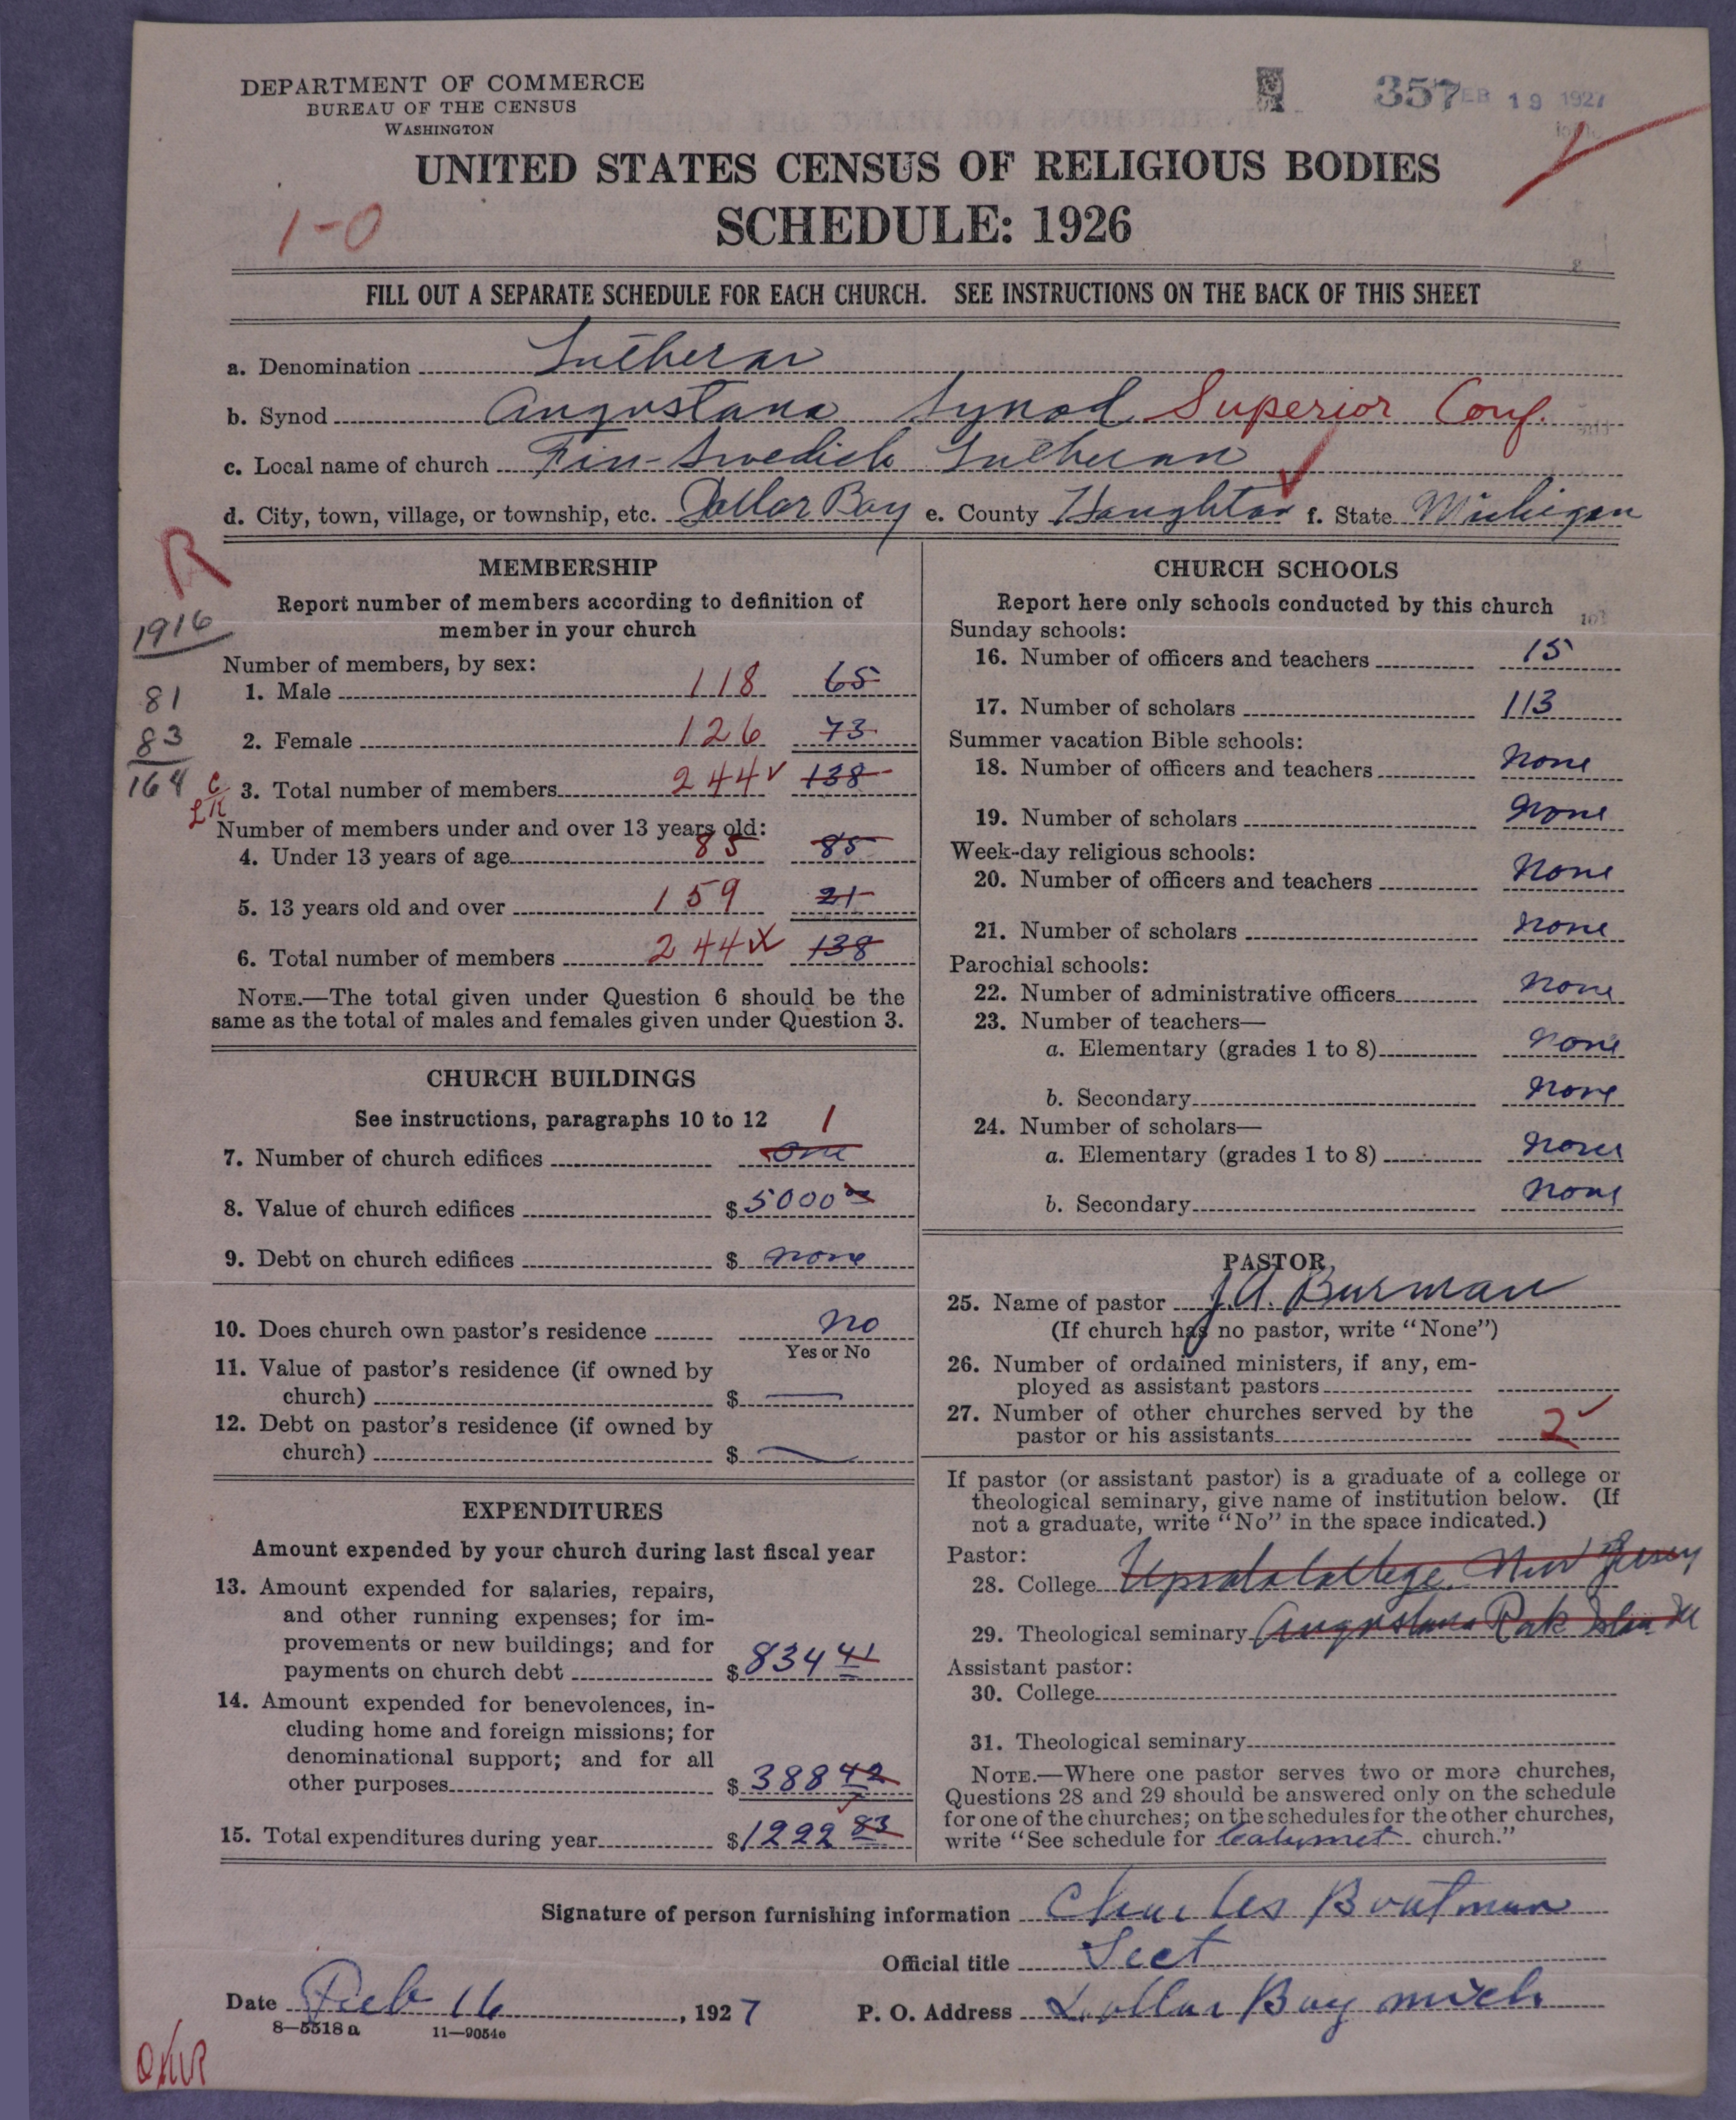 DEPARTMENT OF COMMERCE
BUREAU OF THE CENSUS
WASHINGTON
357 FEB 19 1927
UNITED STATES CENSUS OF RELIGIOUS BODIES
SCHEDULE: 1926
1-0
FILL OUT A SEPARATE SCHEDULE FOR EACH CHURCH. SEE INSTRUCTIONS ON THE BACK OF THIS SHEET
a. Denomination Lutheran
b. Synod Augustana Synod Superior Conf.
c. Local name of church Fin-Swedish Lutheran
d. City, town, village, or township, etc. Dollar Bay e. County Houghton f. State Michigan
R
1916
81
83
164
MEMBERSHIP
Report number of members according to definition of
member in your church
Number of members, by sex:
1. Male 118 65
2. Female 126 73
3. Total number of members 244 138
Number of members under and over 13 years old:
4. Under 13 years of age 85 85
5. 13 years old and over 159 21
6. Total number of members 244 138
NOTE.—The total given under Question 6 should be the
same as the total of males and females given under Question 3.
CHURCH BUILDINGS
See instructions, paragraphs 10 to 12
1
7. Number of church edifices One
8. Value of church edifices $ 5000 00
9. Debt on church edifices $ none
10. Does church own pastor's residence no
Yes or No
11. Value of pastor's residence (if owned by
church) $ —
12. Debt on pastor's residence (if owned by
church) $ —
EXPENDITURES
Amount expended by your church during last fiscal year
13. Amount expended for salaries, repairs,
and other running expenses; for im-
provements or new buildings; and for
payments on church debt $ 834 41
14. Amount expended for benevolences, in-
cluding home and foreign missions; for
denominational support; and for all
other purposes $ 388 42
15. Total expenditures during year $ 1222 83
CHURCH SCHOOLS
Report here only schools conducted by this church
Sunday schools:
16. Number of officers and teachers 15
17. Number of scholars 113
Summer vacation Bible schools:
18. Number of officers and teachers none
19. Number of scholars none
Week-day religious schools:
20. Number of officers and teachers none
21. Number of scholars none
Parochial schools:
22. Number of administrative officers none
23. Number of teachers—
a. Elementary (grades 1 to 8) none
b. Secondary none
24. Number of scholars—
a. Elementary (grades 1 to 8) none
b. Secondary none
PASTOR
25. Name of pastor J.A. Burman
(If church has no pastor, write "None")
26. Number of ordained ministers, if any, em-
ployed as assistant pastors
27. Number of other churches served by the
pastor or his assistants 2
If pastor (or assistant pastor) is a graduate of a college or
theological seminary, give name of institution below. (If
not a graduate, write "No" in the space indicated.)
Pastor:
28. College Upsala College New Jersey
29. Theological seminary Augustana Rock Island Ill
Assistant pastor:
30. College
31. Theological seminary
NOTE.—Where one pastor serves two or more churches,
Questions 28 and 29 should be answered only on the schedule
for one of the churches; on the schedules for the other churches,
write "See schedule for Calumet church."
Signature of person furnishing information Charles Boatman
Official title Sect
Date Feb 16, 1927 P. O. Address Dollar Bay Mich
8—5518 a 11—9054e